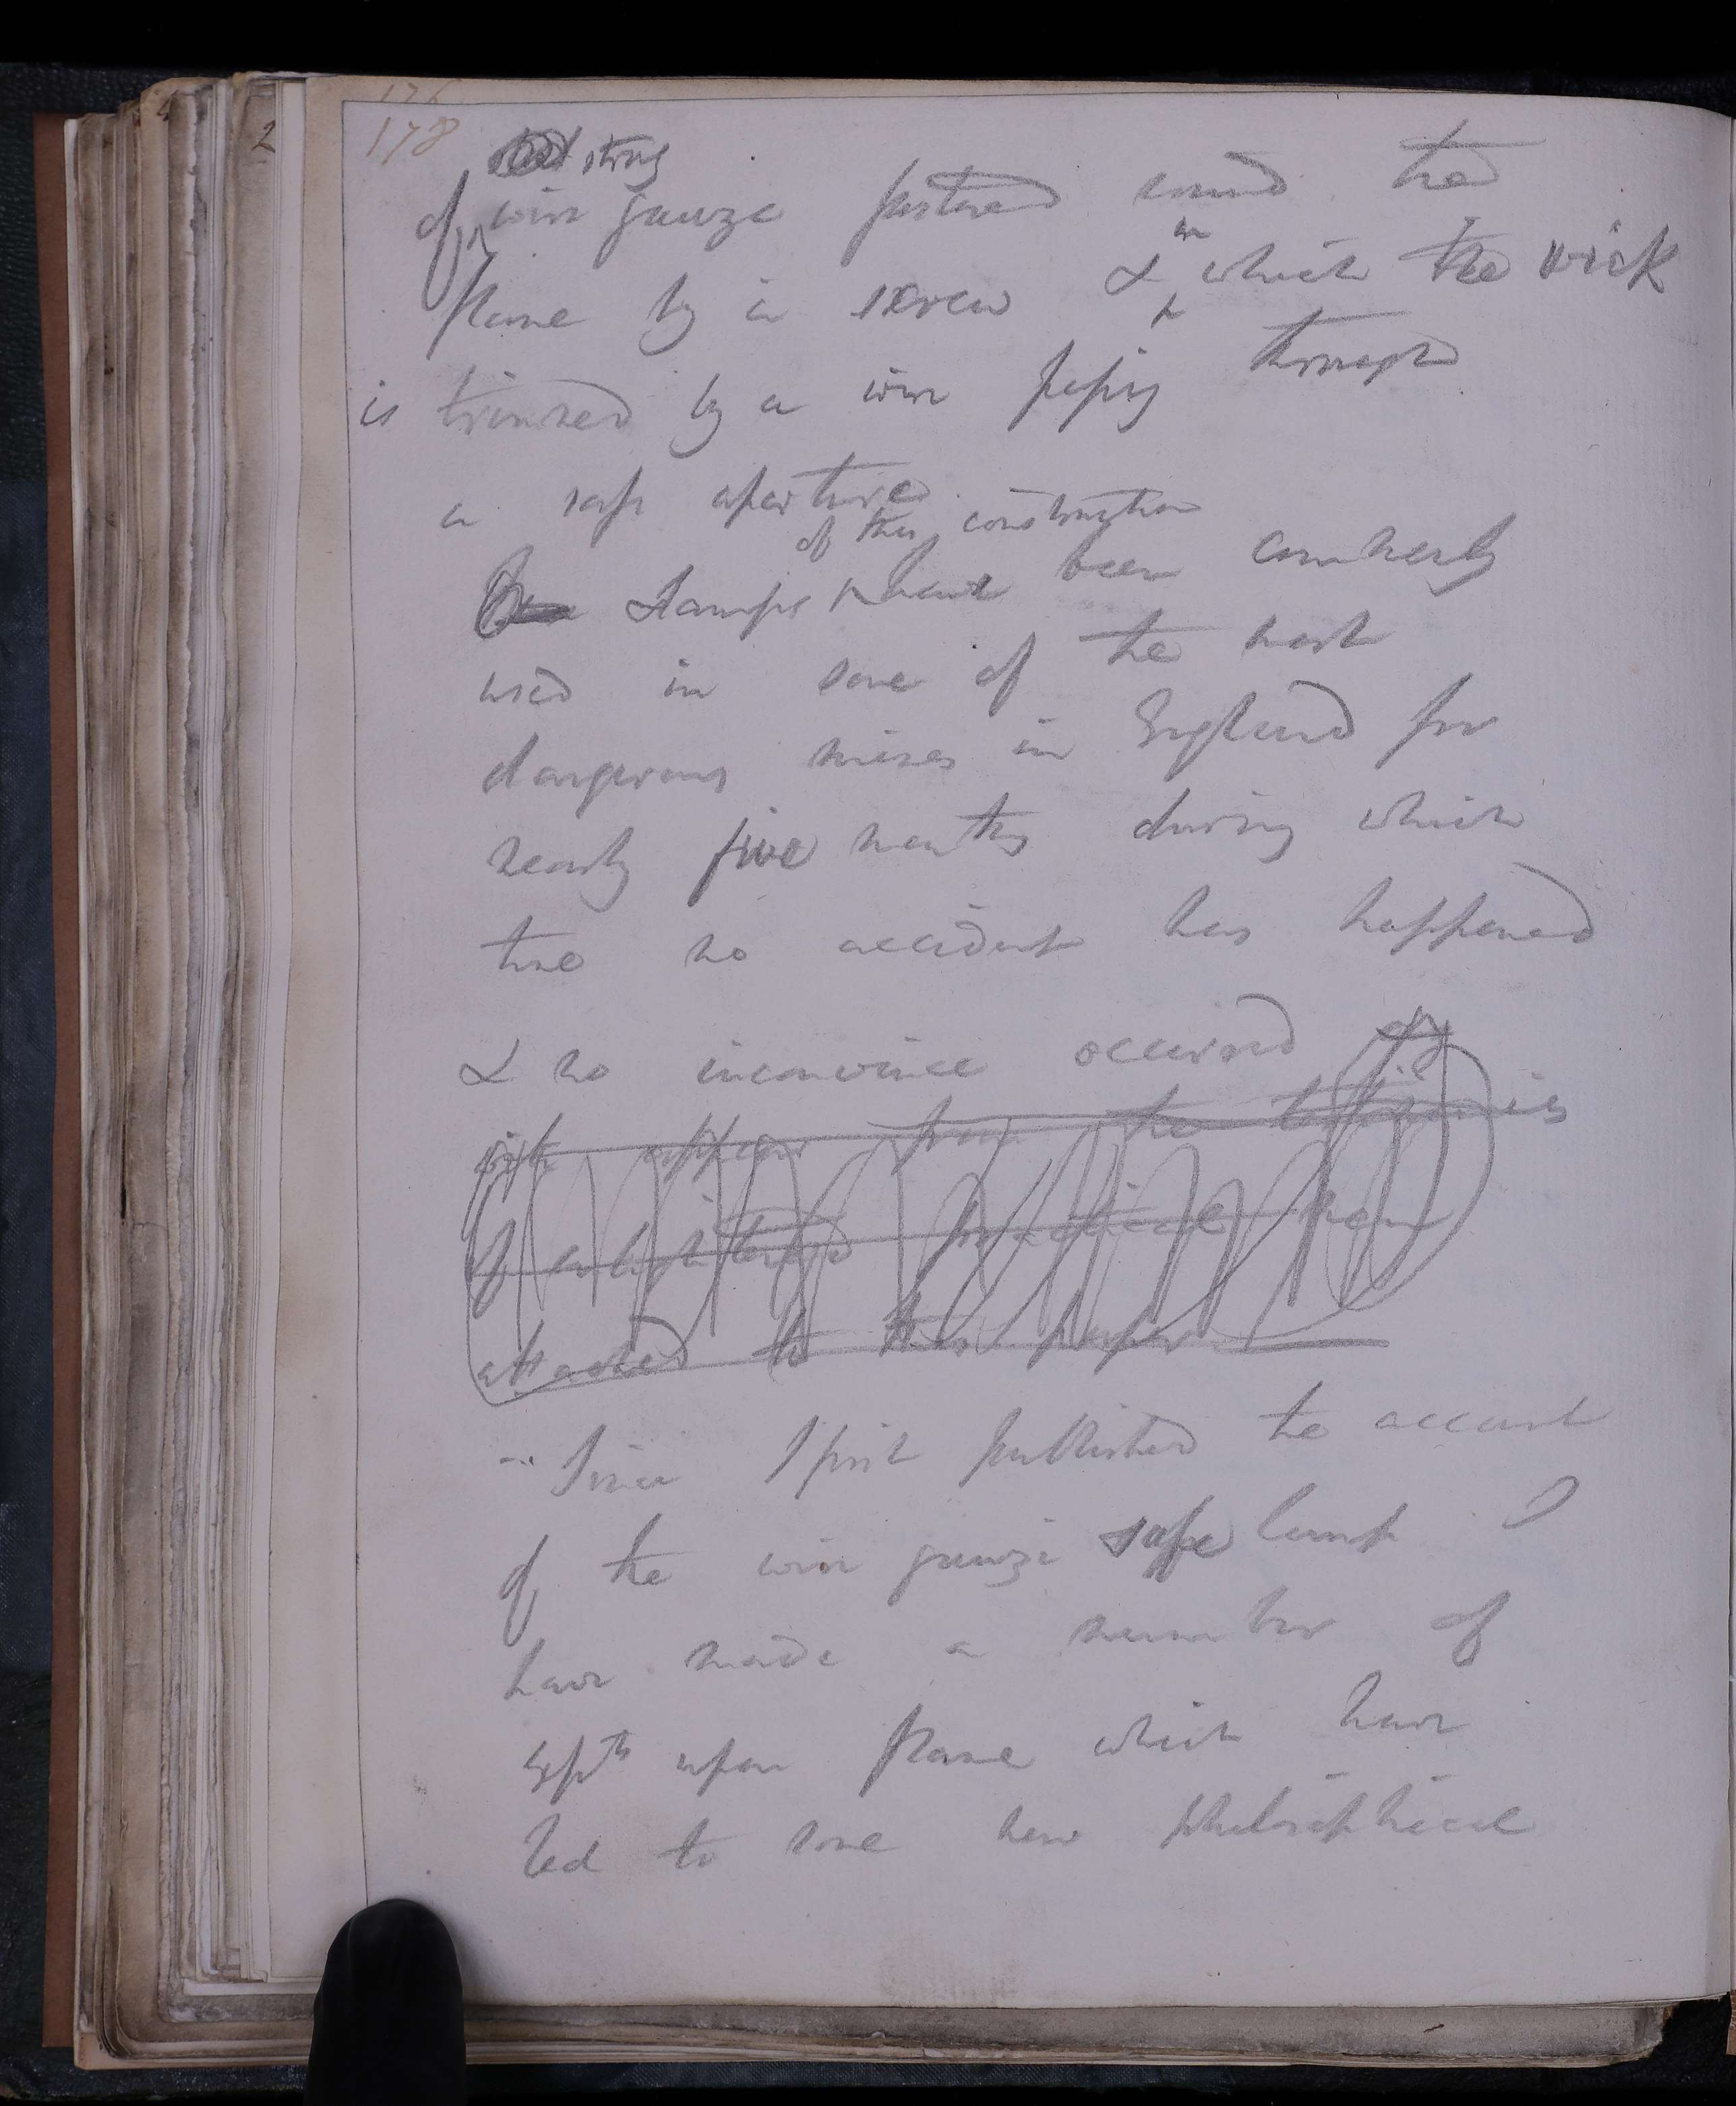 176
178
2
strong
of wire gauze fastened round the
in
flame by a screw & which the wick
is trimmed by a wire passing through
a safe aperture.
of this construction
Lamps have been commonly
used in some of the most
dangerous mines in England for
nearly five months during which
time no accident has happened
& no inconvenience occurred as
will appear from the testimonies
of enlightened practical men
attached to this paper
Since I first published the account
of the wire gauze safe lamp I
have made a number of
expts upon flame which have
led to some new philosophical